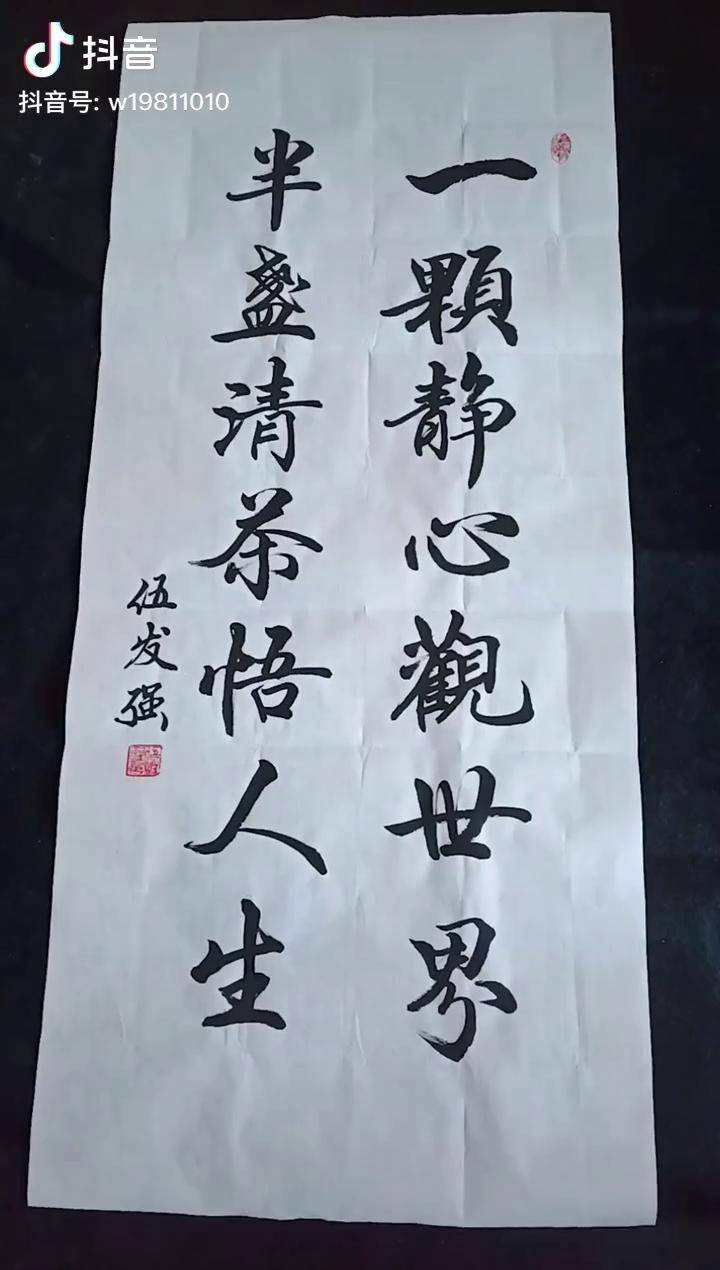 抖音
抖音号: w19811010
一顆静心觀世界
半盏清茶悟人生
伍发强